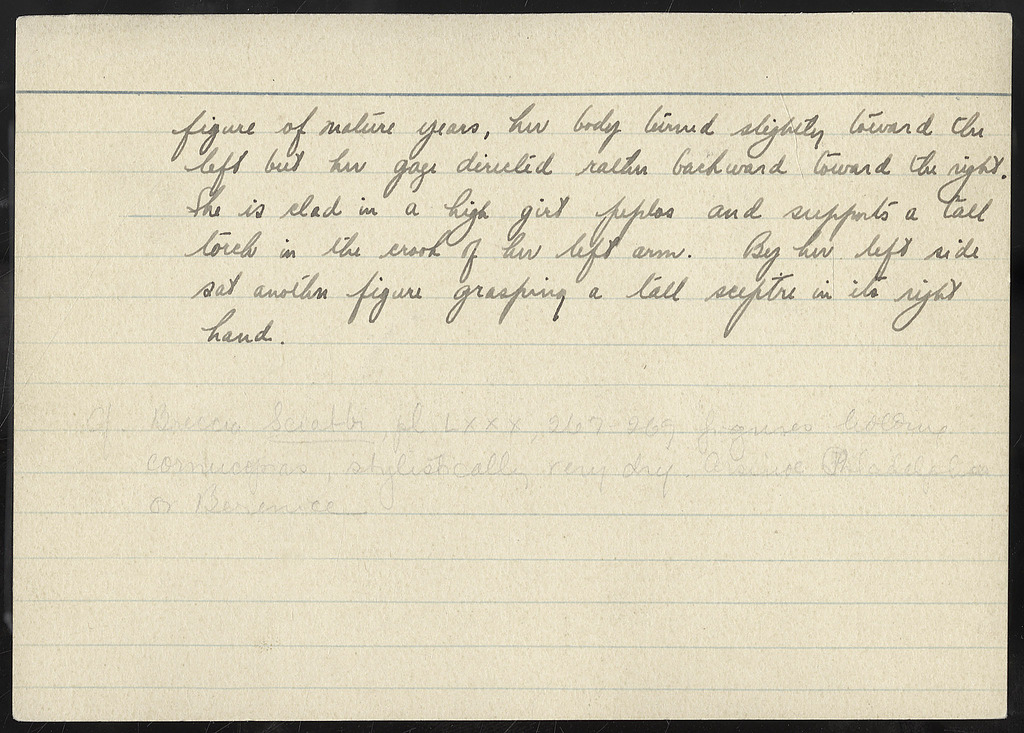 figure of mature years, her body turned slightly toward the
left but her gaze directed rather backward toward the right.
She is clad in a high girt peplos and supports a tall
torch in the crook of her left arm. By her left side
sat another figure grasping a tall sceptre in its right
hand.
Cf. Breccia Sciatbi, pl LXXX, 267-269 figures holding
cornucopias, stylistically very dry. Arsinoe Philadelphos
or Berenice